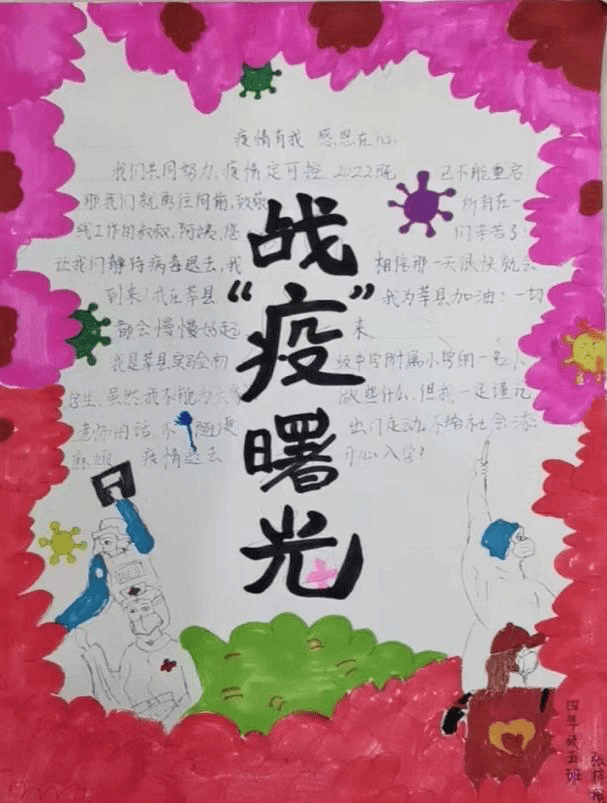 疫情有我 感恩在心.
我们共同努力,疫情定可控.2022既 已不能重启
那我们就勇往向前,致敬 所有在一
线工作的叔叔,阿姨,您 们辛苦了!
让我们静待病毒退去,我 相信那一天很快就会
到来!我在莘县 我为莘县加油!一切
都会慢慢好起 来
我是莘县实验初 级中学附属小学的一名小
学生,虽然我不能为大家 做些什么,但我一定谨记
老师的话,不 随便 出门走动,不给社会添
麻烦 疫情退去 开心入学!
战
“疫”
曙
光
四年级五班
张